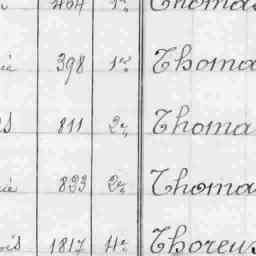 404 1re Thomas
ie 398 1re Thoma
s 811 2e Thoma
ie 823 2e Thomas
ois 1817 4e Thoreus